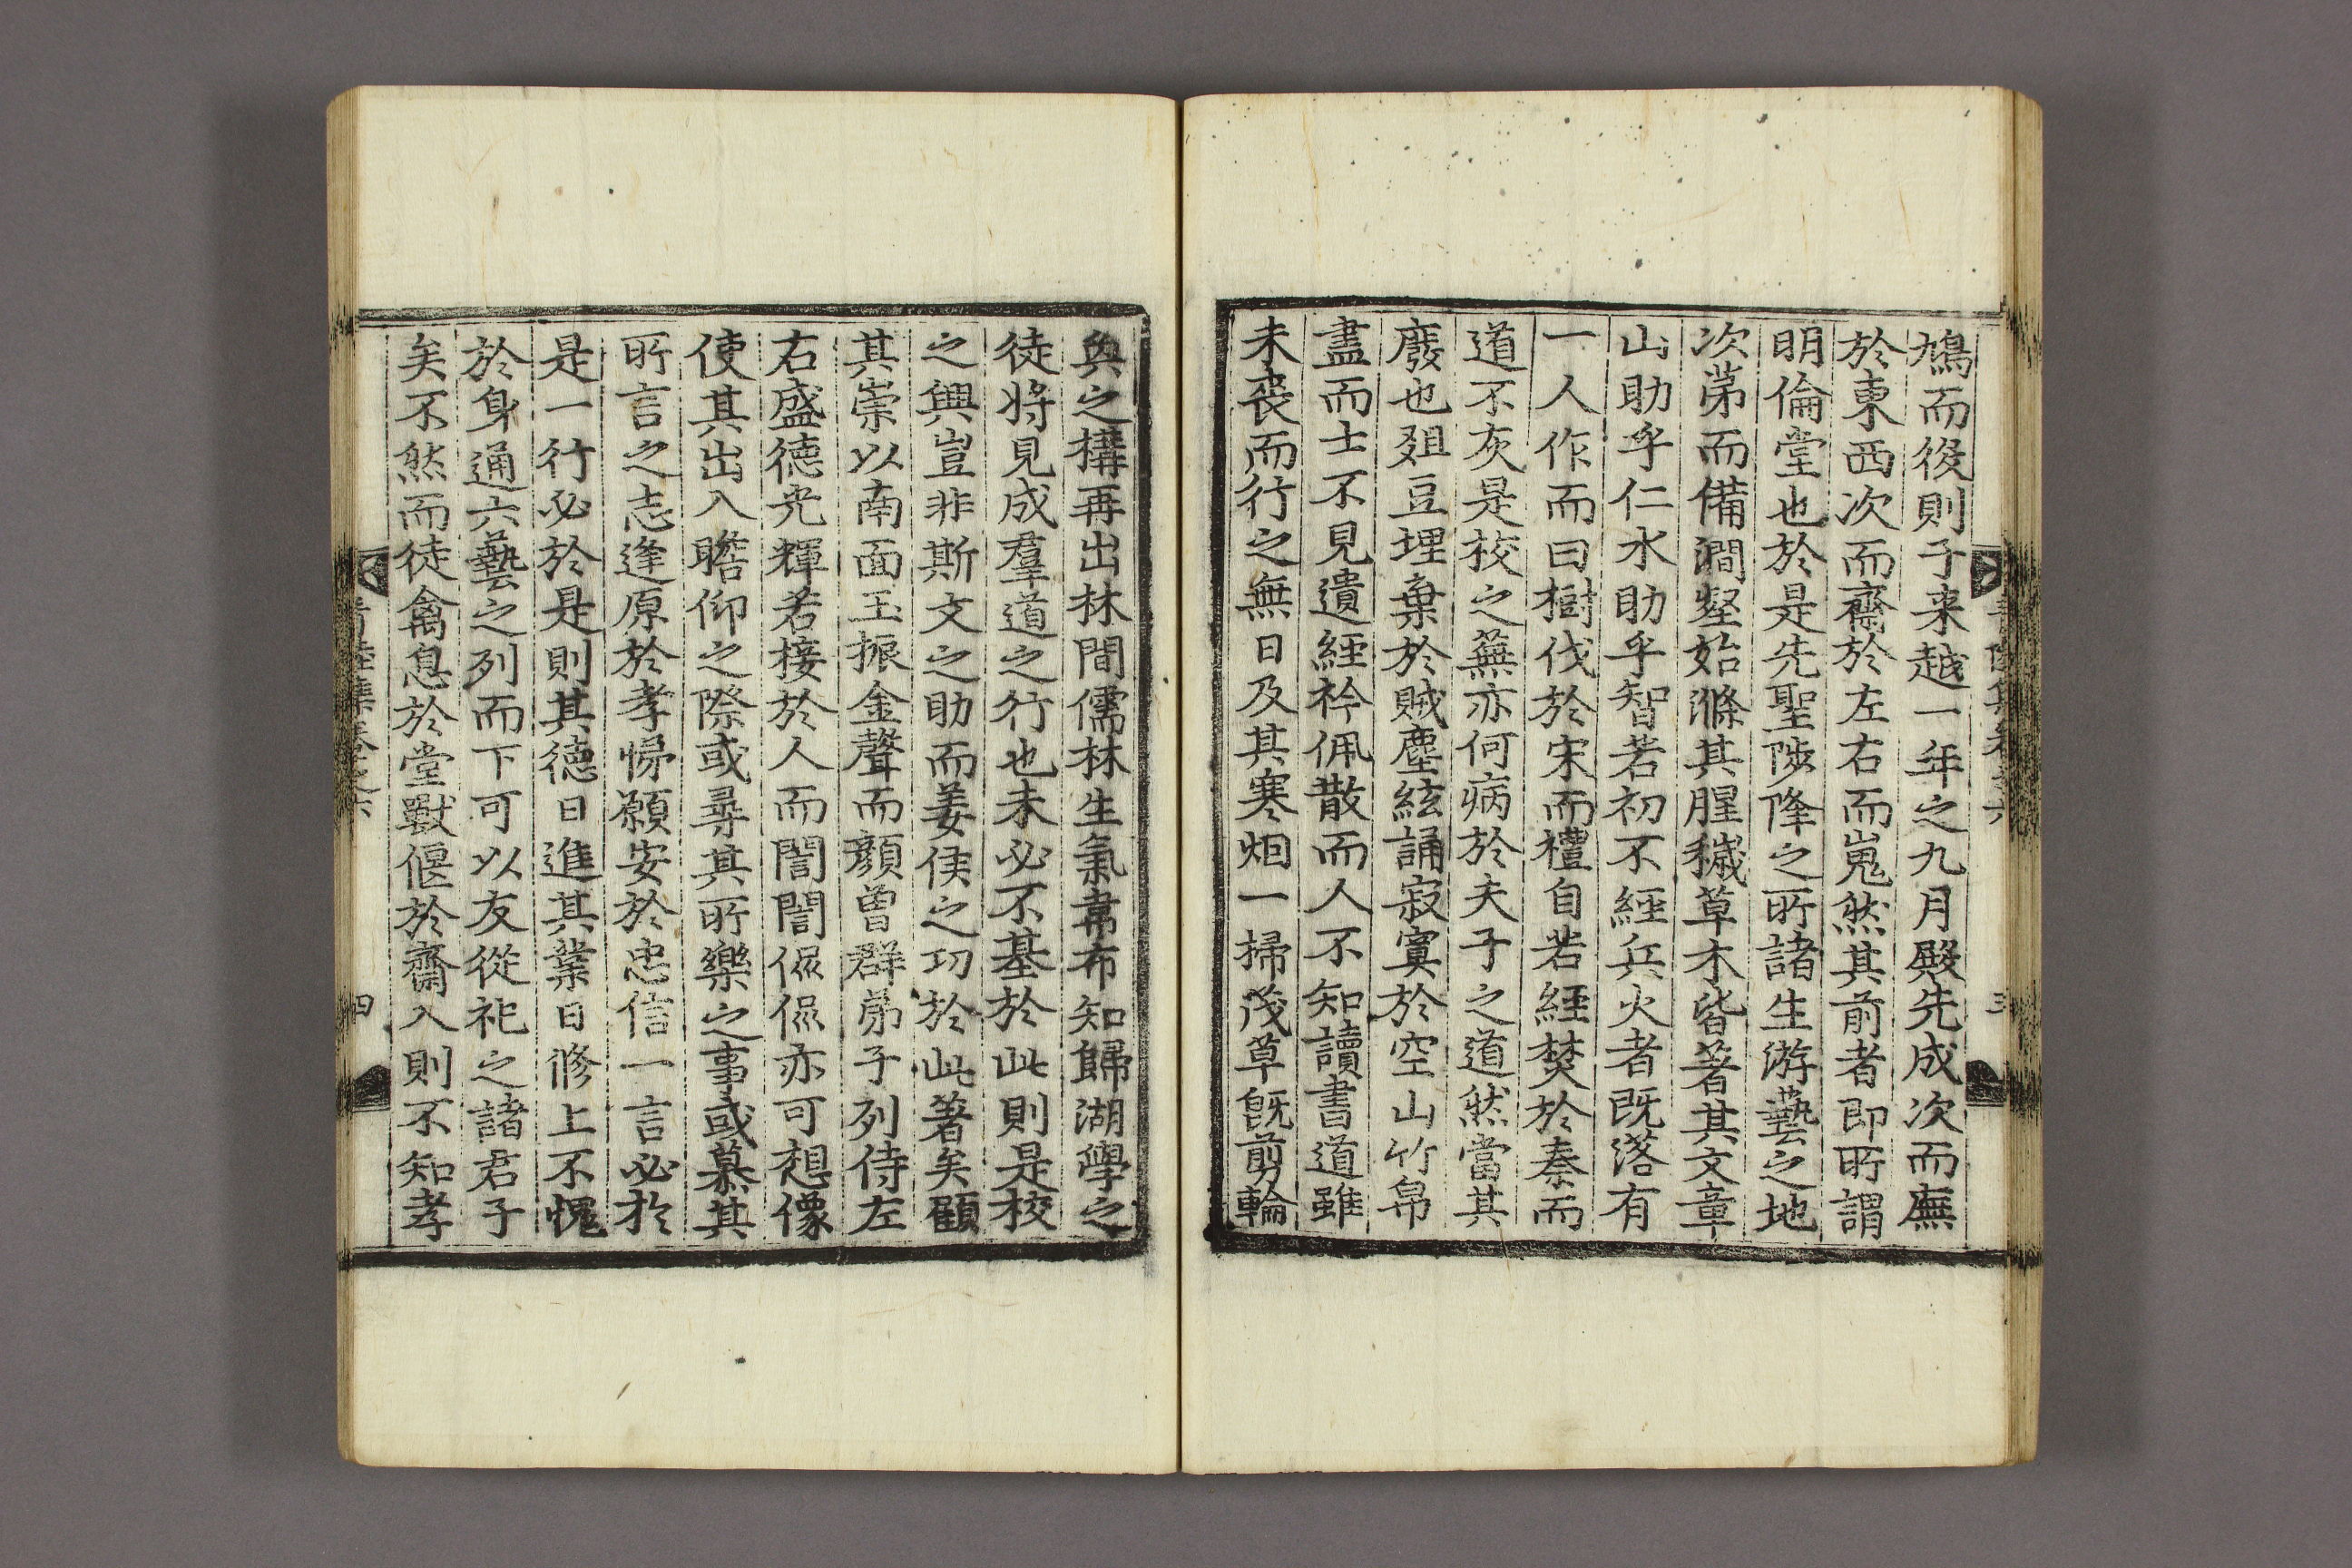 鳩而後則子来越一年之九月殿先成次而廡
於東西次而齋於左右而嵬然其前者即所謂
明倫堂也於是先聖陟降之所諸生游藝之地
次第而備澗壑始滌其腥穢草木皆著其文章
山助乎仁水助乎智若初不經兵火者既落有
一人作而曰樹伐於宋而禮自若經焚於秦而
道不灰是校之蕪亦何病於夫子之道然當其
廢也爼豆埋棄於賊塵絃誦寂寞於空山竹帛
盡而士不見遺經衿佩散而人不知讀書道雖
未喪而行之無日及其寒烟一掃茂草旣剪輪
奐之構再出林間儒林生氣韋布知歸湖學之
徒將見成羣道之行也未必不基於此則是校
之興豈非斯文之助而姜侯之功於此著矣顧
其崇以南面玉振金聲而顔曽群弟子列侍左
右盛德光輝若接於人而誾誾侃侃亦可想像
使其出入瞻仰之際或尋其所樂之事或慕其
所言之志逢原於孝悌願安於忠信一言必於
是一行必於是則其德日進其業日修上不愧
於身通六藝之列而下可以友從祀之諸君子
矣不然而徒禽息於堂獸偃於齋入則不知孝
集卷之六
三
四